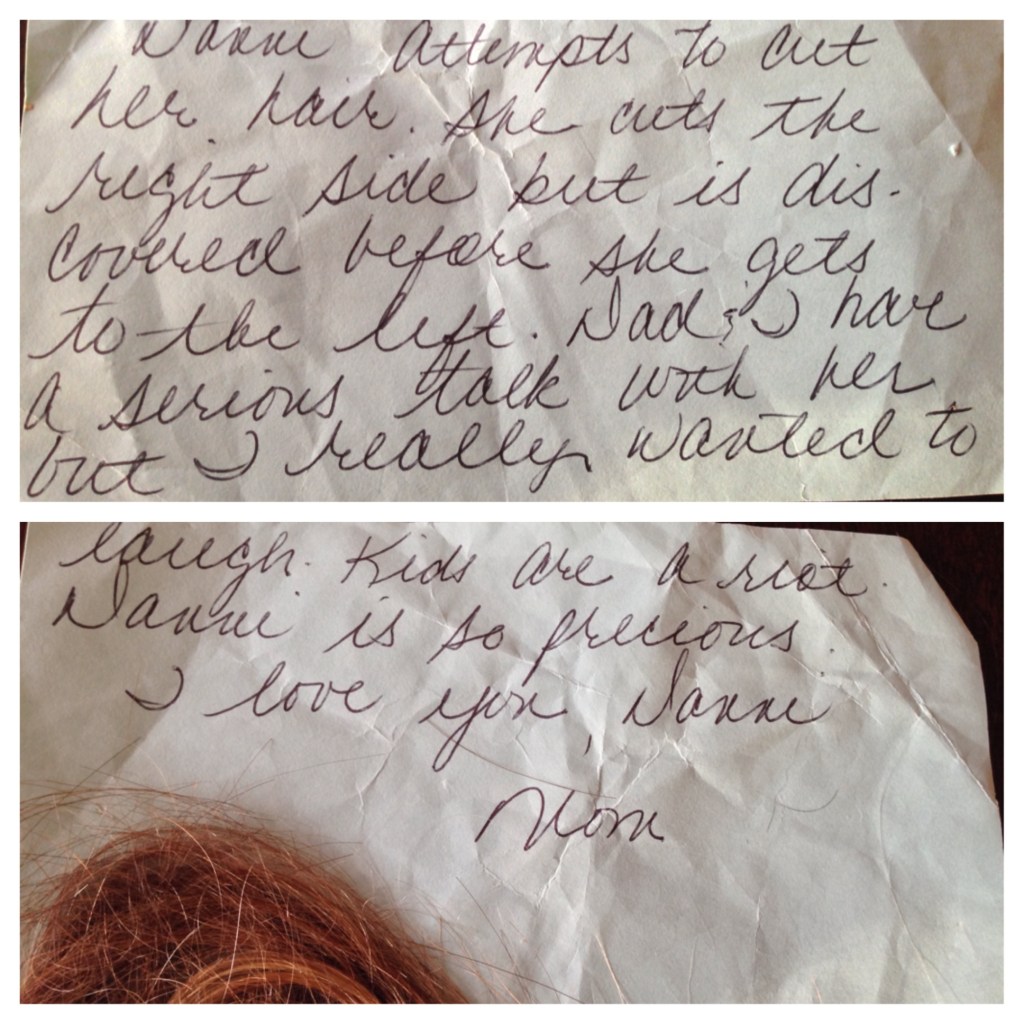 Danni attempts to cut
her hair. She cuts the
right side but is dis-
covered before she gets
to the left. Dad & I have
a serious talk with her
but I really wanted to
laugh. Kids are a riot.
Danni is so precious.
I love you, Danni
Mom